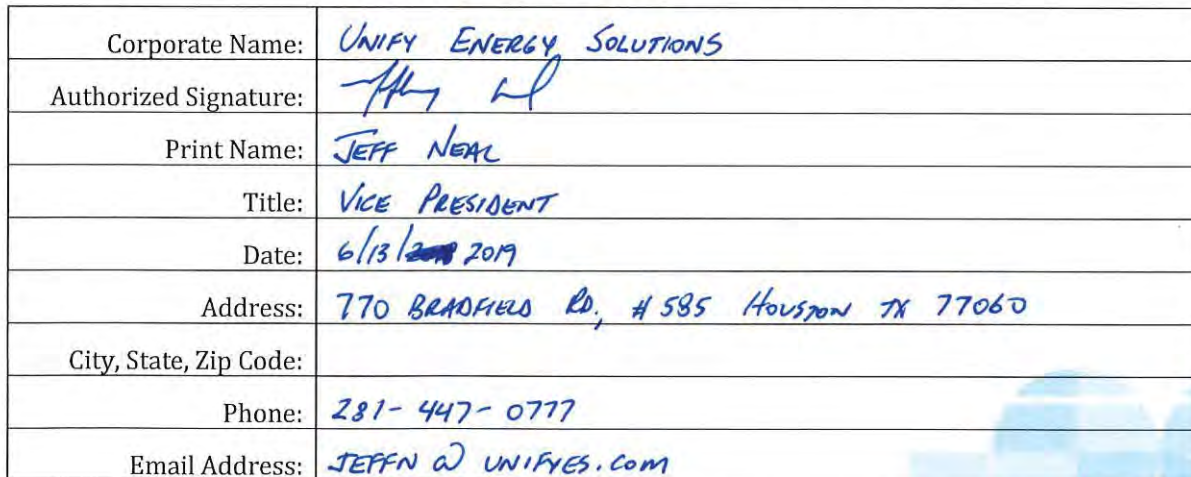 Corporate Name: UNIFY ENERGY SOLUTIONS
Authorized Signature:
Print Name: JEFF NEAL
Title: VICE PRESIDENT
Date: 6/13/ 2019
Address: 770 BRADFIELD RD., # 585 HOUSTON TX 77060
City, State, Zip Code:
Phone: 281-447-0777
Email Address: JEFFN @ UNIFYES.COM